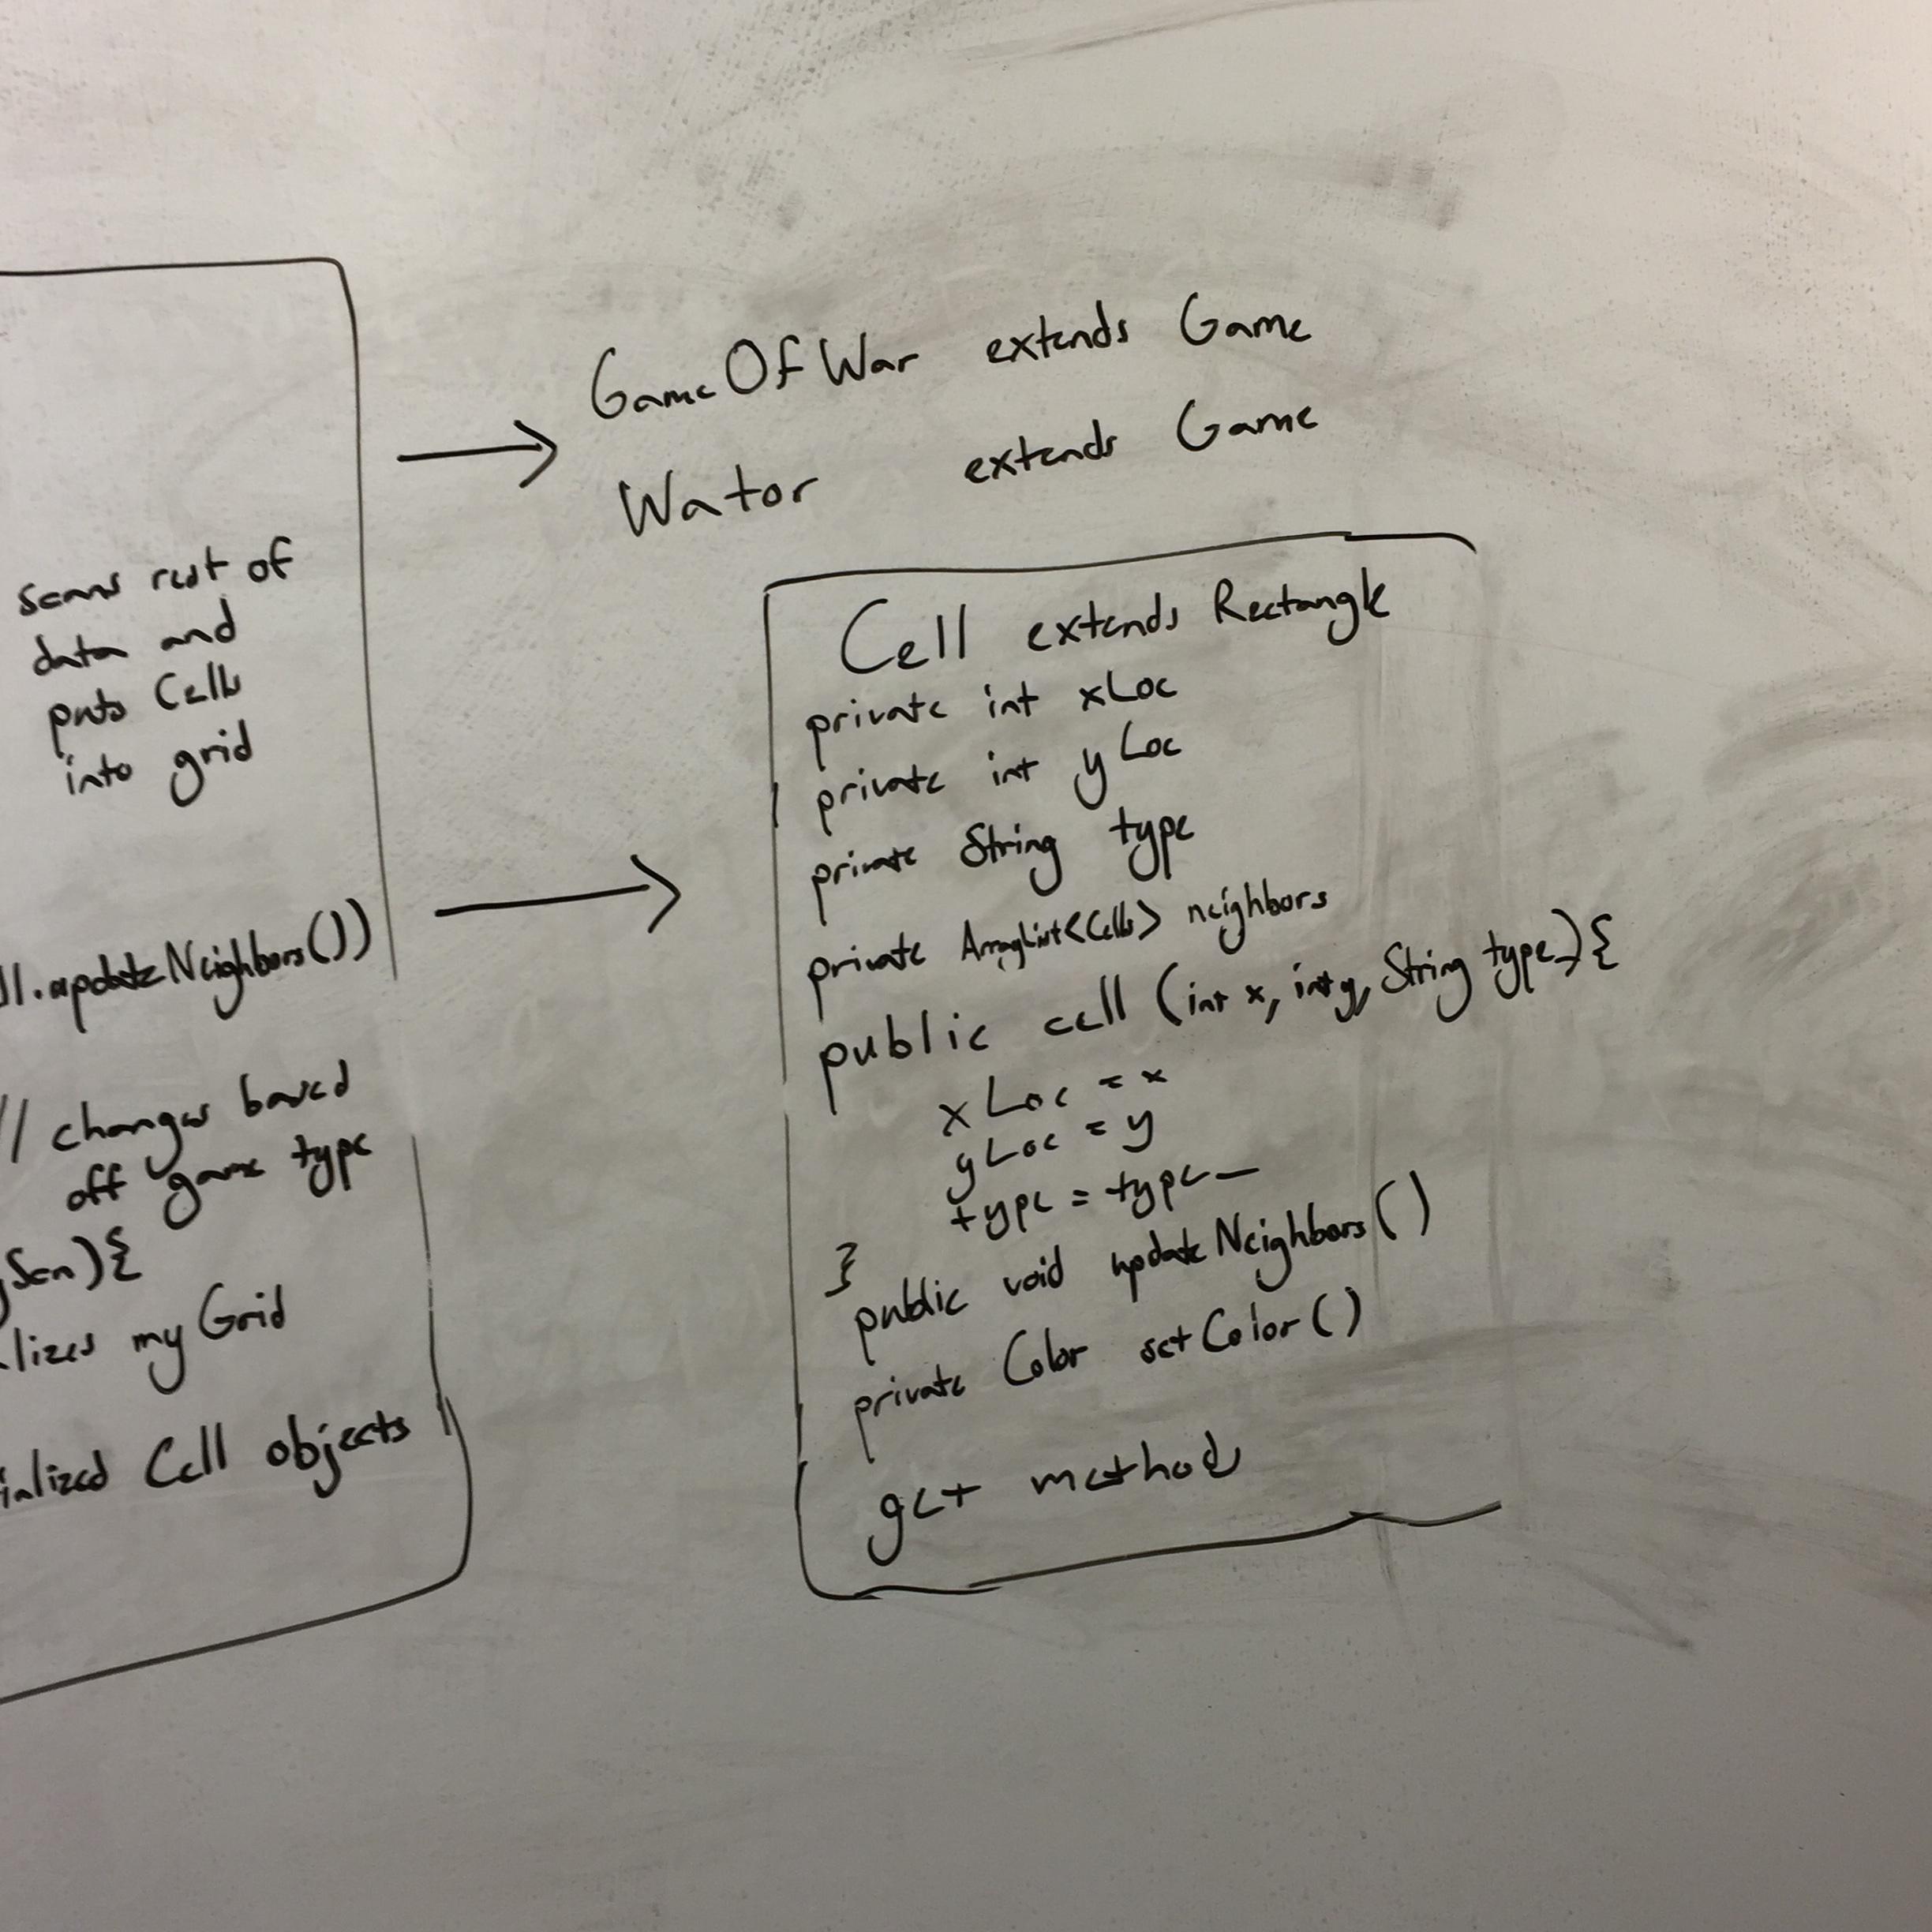 scans rest of
data and
puts Cells
into grid
ll.updateNeighbors())
// changes based
off game type
Scn){
lizes my Grid
ialized Cell objects
GameOfWar extends Game
Wator extends Game
Cell extends Rectangle
private int xLoc
private int yLoc
private String type
private ArrayList<Cells> neighbors
public cell (int x, int y, String type_){
xLoc = x
yLoc = y
type = type_
}
public void updateNeighbors()
private Color setColor()
get methods